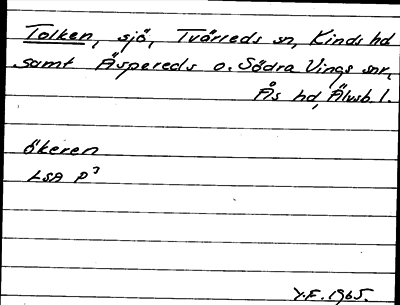 Tolken, sjö, Tvärreds sn, Kinds hd
samt Äspereds o. Södra Vings snr,
Ås hd, Älvsb. l.
ökeren
LSA P³
Y.F. 1965.